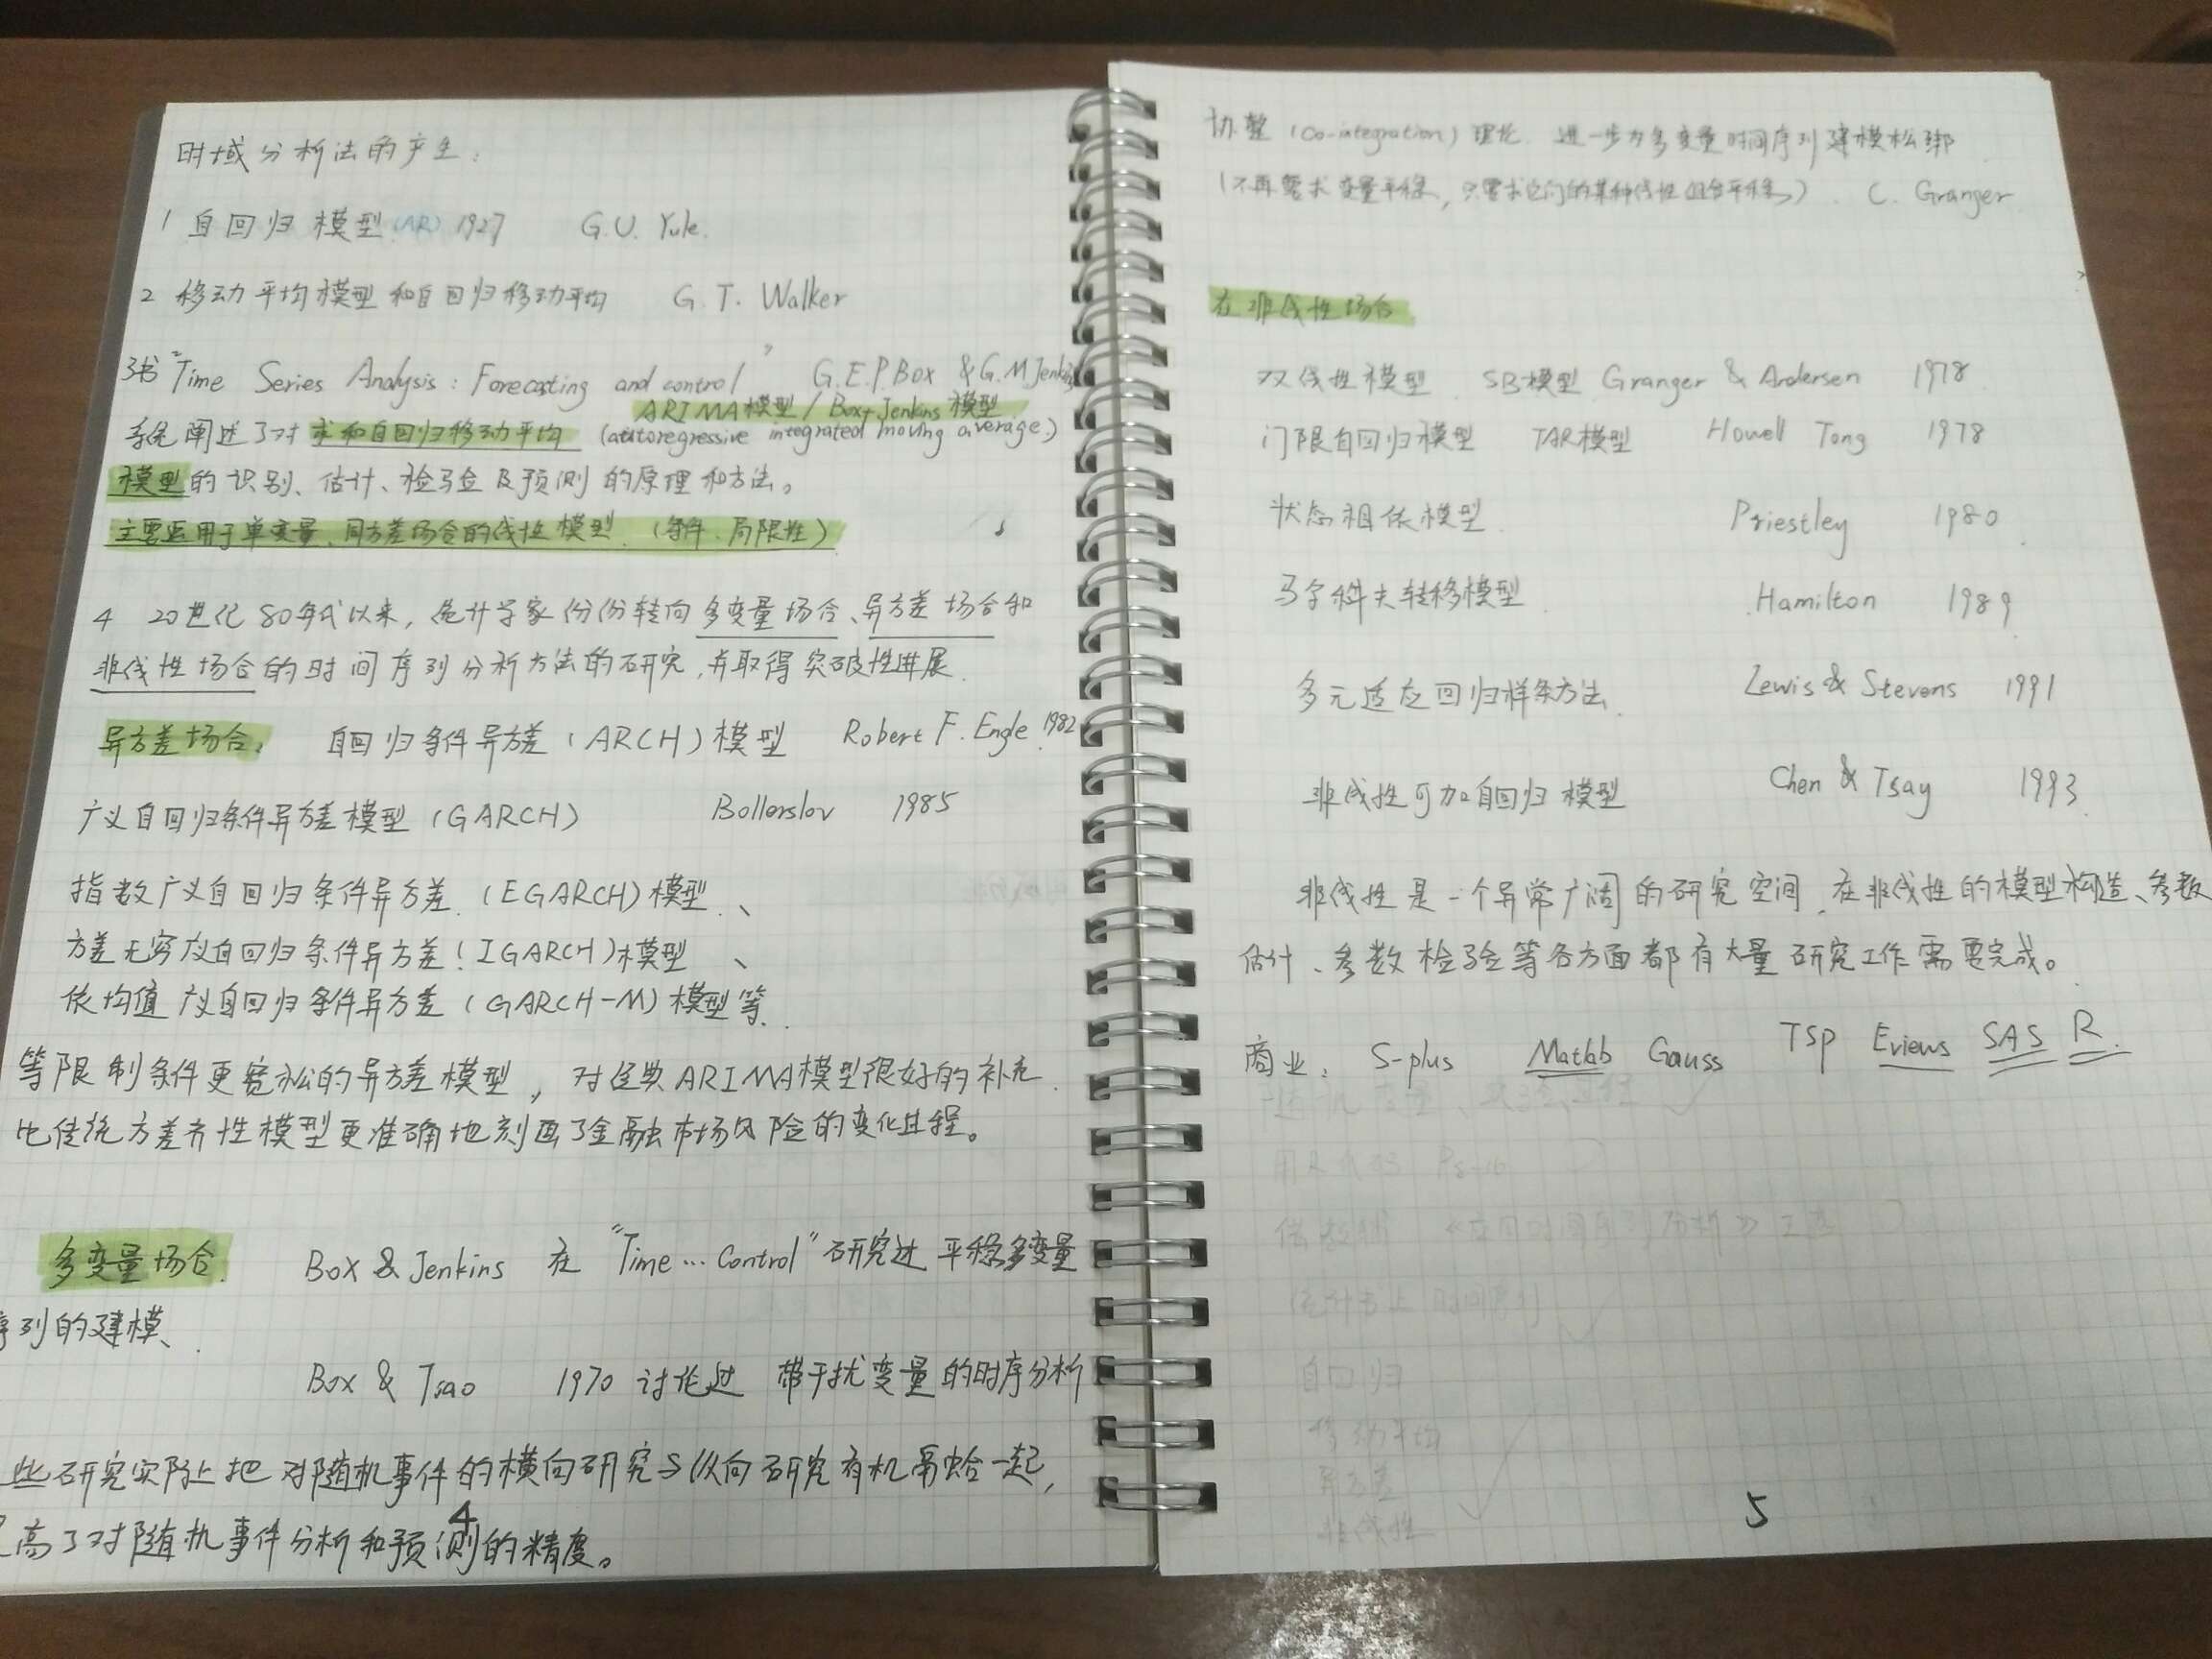 时域分析法的产生：
1 自回归模型(AR) 1927 G.U. Yule.
2 移动平均模型和自回归移动平均 G.T. Walker
3书 "Time Series Analysis : Forecasting and control" G.E.P.Box & G.M.Jenkins
ARIMA模型 / Box-Jenkins 模型
系统阐述了对求和自回归移动平均 (autoregressive integrated moving average.)
模型的识别、估计、检验及预测的原理和方法。
主要运用于单变量、同方差场合的线性模型. (条件、局限性)
4 20世纪80年代以来，统计学家份份转向多变量场合、异方差场合和
非线性场合的时间序列分析方法的研究,并取得突破性进展.
异方差场合: 自回归条件异方差 (ARCH) 模型 Robert F. Engle 1982
广义自回归条件异方差模型 (GARCH) Bollerslov 1985
指数广义自回归条件异方差. (EGARCH) 模型、
方差无穷广义自回归条件异方差 (IGARCH) 模型、
依均值广义自回归条件异方差 (GARCH-M) 模型等.
等限制条件更宽松的异方差模型，对经典ARIMA模型很好的补充.
比传统方差齐性模型更准确地刻画了金融市场风险的变化过程。
多变量场合. Box & Jenkins 在 "Time … Control" 研究过平稳多变量
序列的建模、
Box & Tsao 1970 讨论过 带干扰变量的时序分析
些研究实际上把对随机事件的横向研究与纵向研究有机融合一起，
高了对随机事件分析和预测的精度。
4
协整 (Co-integration) 理论. 进一步为多变量时间序列建模松绑
(不再要求变量平稳，只要求它们的某种线性组合平稳). C. Granger
在非线性场合
双线性模型. SB模型 Granger & Andersen 1978
门限自回归模型 TAR模型 Howell Tong 1978
状态相依模型. Priestley 1980
马尔科夫转移模型 Hamilton 1989
多元适应回归样条方法. Lewis & Stevens 1991
非线性可加自回归模型 Chen & Tsay 1993.
非线性是一个异常广阔的研究空间，在非线性的模型构造、参数
估计、参数检验等各方面都有大量研究工作需要完成。
商业: S-plus Matlab Gauss TSP Eviews SAS R.
5